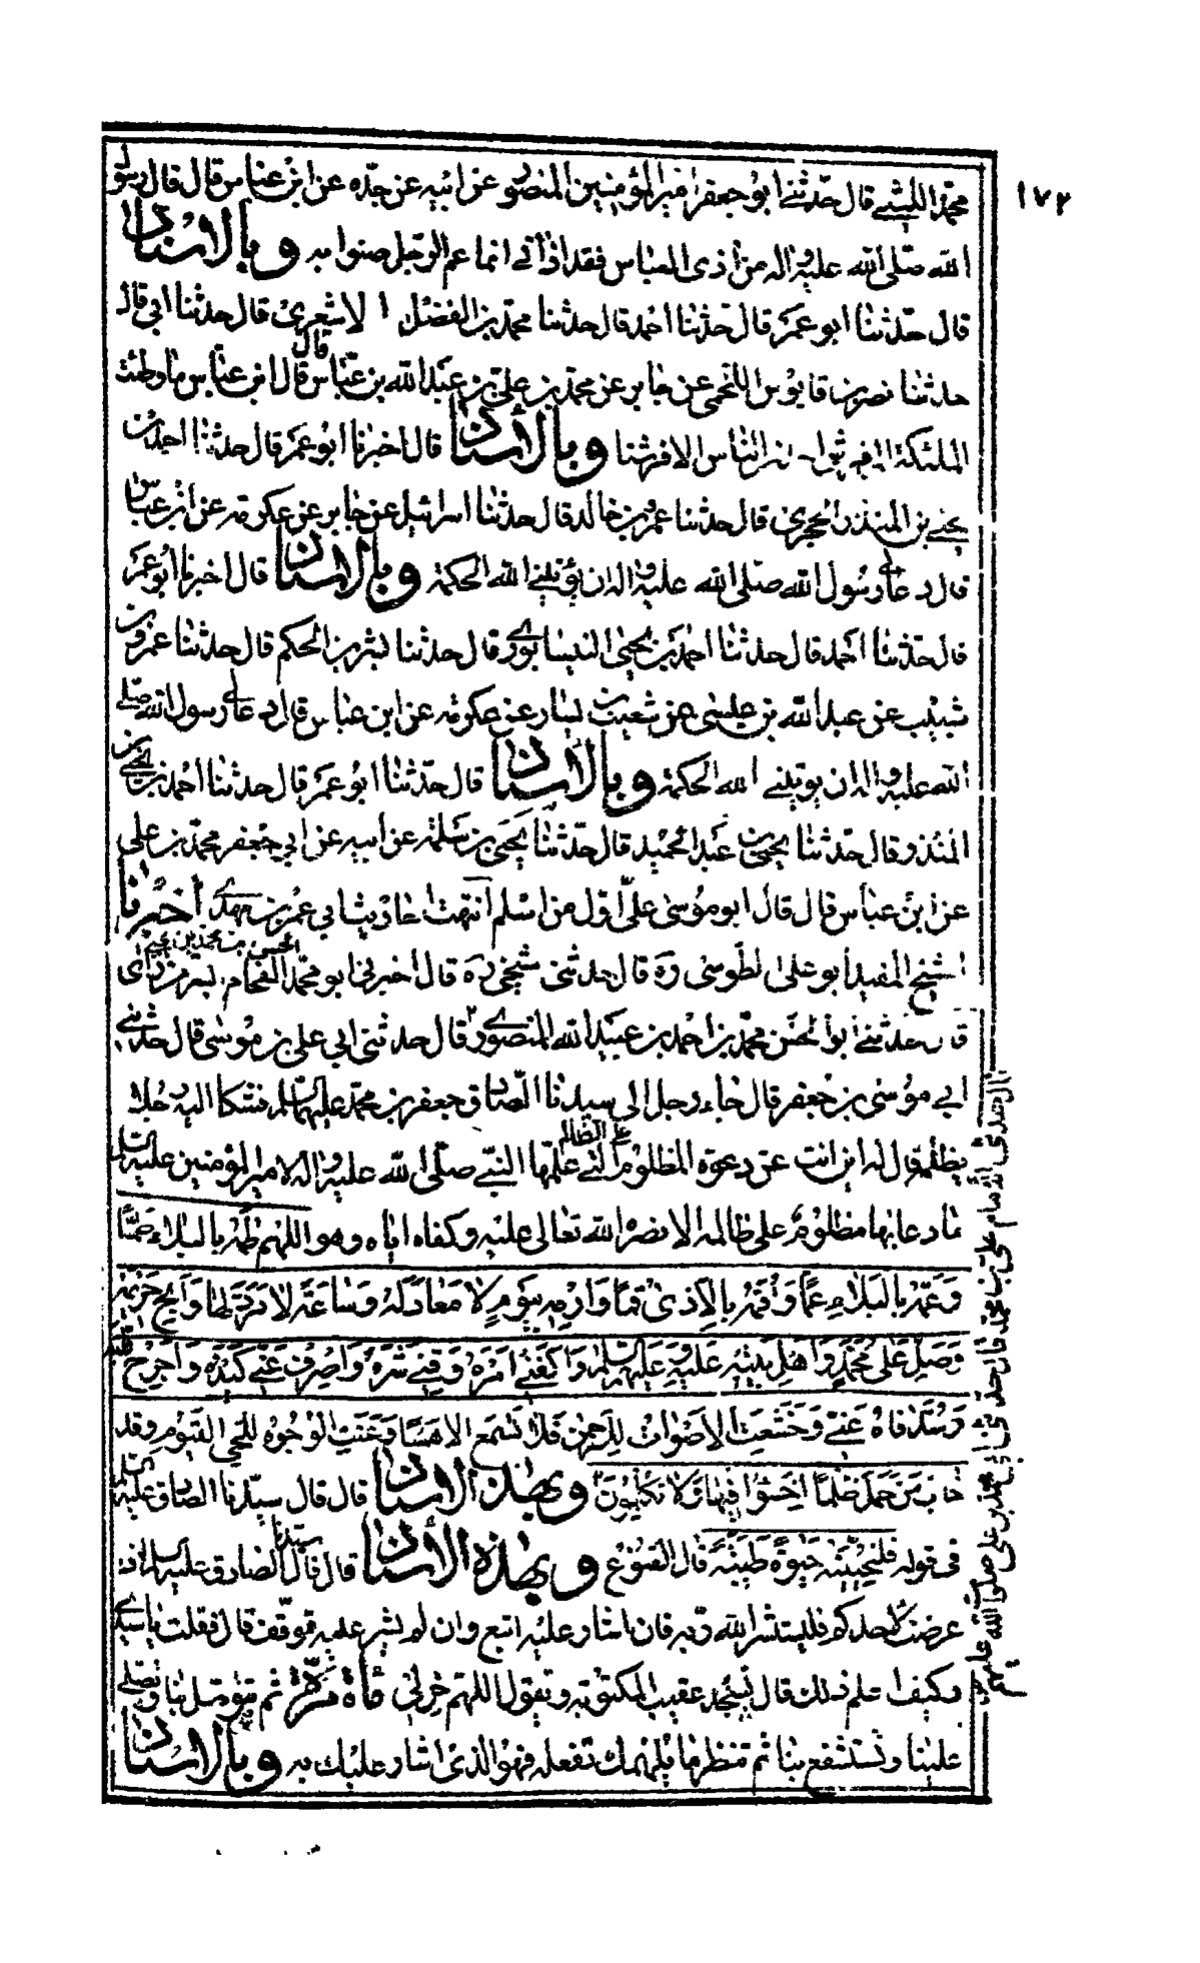 ١٧٢
محمد الليثي قال حدثني ابو جعفر امير المؤمنين المنصور عن ابيه عن جده عن ابن عباس قال قال رسول
الله صلى الله عليه واله من اذى العباس فقد اذاني انما عم الرجل صنو ابيه وبالاسناد
قال حدثنا ابو عمر قال حدثنا احمد قال حدثنا محمد بن الفضل الاشعري قال حدثنا ابي قال
حدثنا نصر بن قابوس اللخمي عن جابر عن محمد بن علي بن عبد الله بن عباس قال قال ابن عباس ما وطئت
الملئكة الناس الا فرشنا وبالاسناد قال اخبرنا ابو عمر قال حدثنا احمد بن
يحيى بن المنذر الحجري قال حدثنا عمرو بن خالد قال حدثنا اسرائيل عن جابر عن عكرمة عن ابن عباس
قال دعا لي رسول الله صلى الله عليه واله ان يؤتيني الله الحكمة وبالاسناد قال اخبرنا ابو عمر
قال حدثنا احمد قال حدثنا احمد بن يحيى النيسابوري قال حدثنا بشر بن الحكم قال حدثنا عمرو بن
شبيب عن عبد الله بن عيسى عن شعيب بن يسار عن عكرمة عن ابن عباس قال دعا لي رسول الله صلى
الله عليه واله ان يوتيني الله الحكمة وبالاسناد قال حدثنا ابو عمر قال حدثنا احمد بن يحيى بن
المنذر قال حدثنا يحيى بن عبد الحميد قال حدثنا يحيى بن سلمة عن ابيه عن ابي جعفر محمد بن علي
عن ابن عباس قال قال ابو موسى علي اول من اسلم انتهت احاديث ابي عمر بن مهدي اخبرنا
الشيخ المفيد ابو علي الطوسي ره قال حدثني شيخي ره قال اخبرني ابو محمد الفحام بسر من راى
الحسن بن محمد بن يحيى
قال حدثني ابو الحسن محمد بن احمد بن عبيد الله المنصوري قال حدثني ابي علي بن موسى قال حدثني
ابي موسى بن جعفر قال جاء رجل الى سيدنا الصادق جعفر بن محمد عليهما السلم فشكا اليه رجلا
يظلمه قال له اين انت عن دعوة المظلوم على الظالم التي علمها النبي صلى الله عليه واله لامير المؤمنين عليه السلم
ما دعا بها مظلوم على ظالمه الا نصره الله تعالى عليه وكفاه اياه وهو اللهم طمه بالبلاء طما
وعمه بالبلاء عما وقمه بالاذى قما وارمه بيوم لا معاد له وساعة لا مرد لها وابح حريمه
وصل على محمد واهل بيته عليه وعليهم السلم واكفني امره وقني شره واصرف عني كيده واحرج قلبه
وسد فاه عني وخشعت الاصوات للرحمن فلا تسمع الا همسا وعنت الوجوه للحي القيوم وقد
خاب من حمل ظلما اخسئوا فيها ولا تكلمون وبهذا الاسناد قال قال سيدنا الصادق عليه السلم
في قوله فلنحيينه حيوة طيبة قال القنوع وبهذه الاسناد قال قال سيدنا الصادق عليه السلم اذا
عرضت لاحدكم فليستشر الله ربه فان اشار عليه اتبع وان لم يشر عليه توقف قال فقلت يا سيدي
وكيف اعلم ذلك قال تسجد عقيب المكتوبة وتقول اللهم خر لي مائة مرة ثم تتوسل بنا وتصلي
علينا وتستشفع بنا ثم تنظر ما يلهمك تفعله فهو الذي اشار عليك به وبالاسناد
قال حدثني الامام علي بن محمد قال حدثني ابي محمد بن علي صلوات الله عليهم